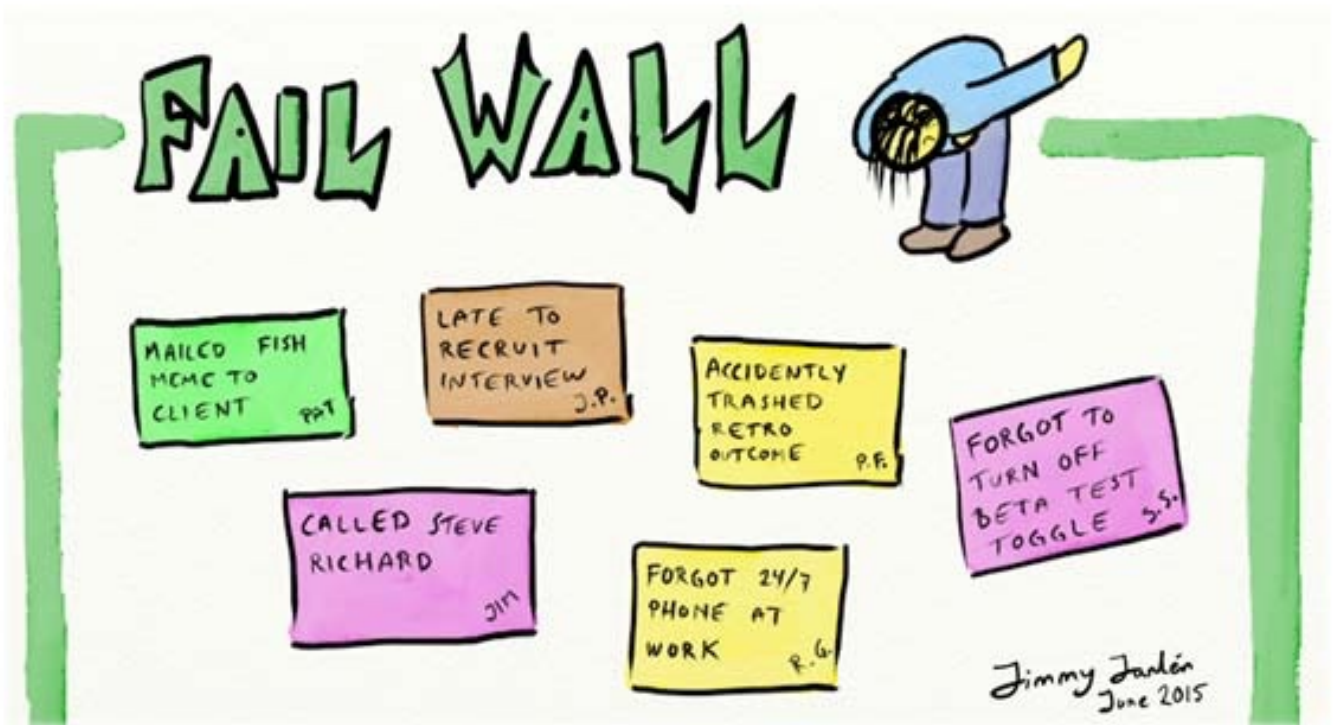 FAIL WALL
MAILED FISH
MEME TO
CLIENT
PAT
LATE TO
RECRUIT
INTERVIEW
J.P.
ACCIDENTLY
TRASHED
RETRO
OUTCOME
P.F.
FORGOT TO
TURN OFF
BETA TEST
TOGGLE
S.S.
CALLED STEVE
RICHARD
JIM
FORGOT 24/7
PHONE AT
WORK
R.G.
Jimmy Janlén
June 2015